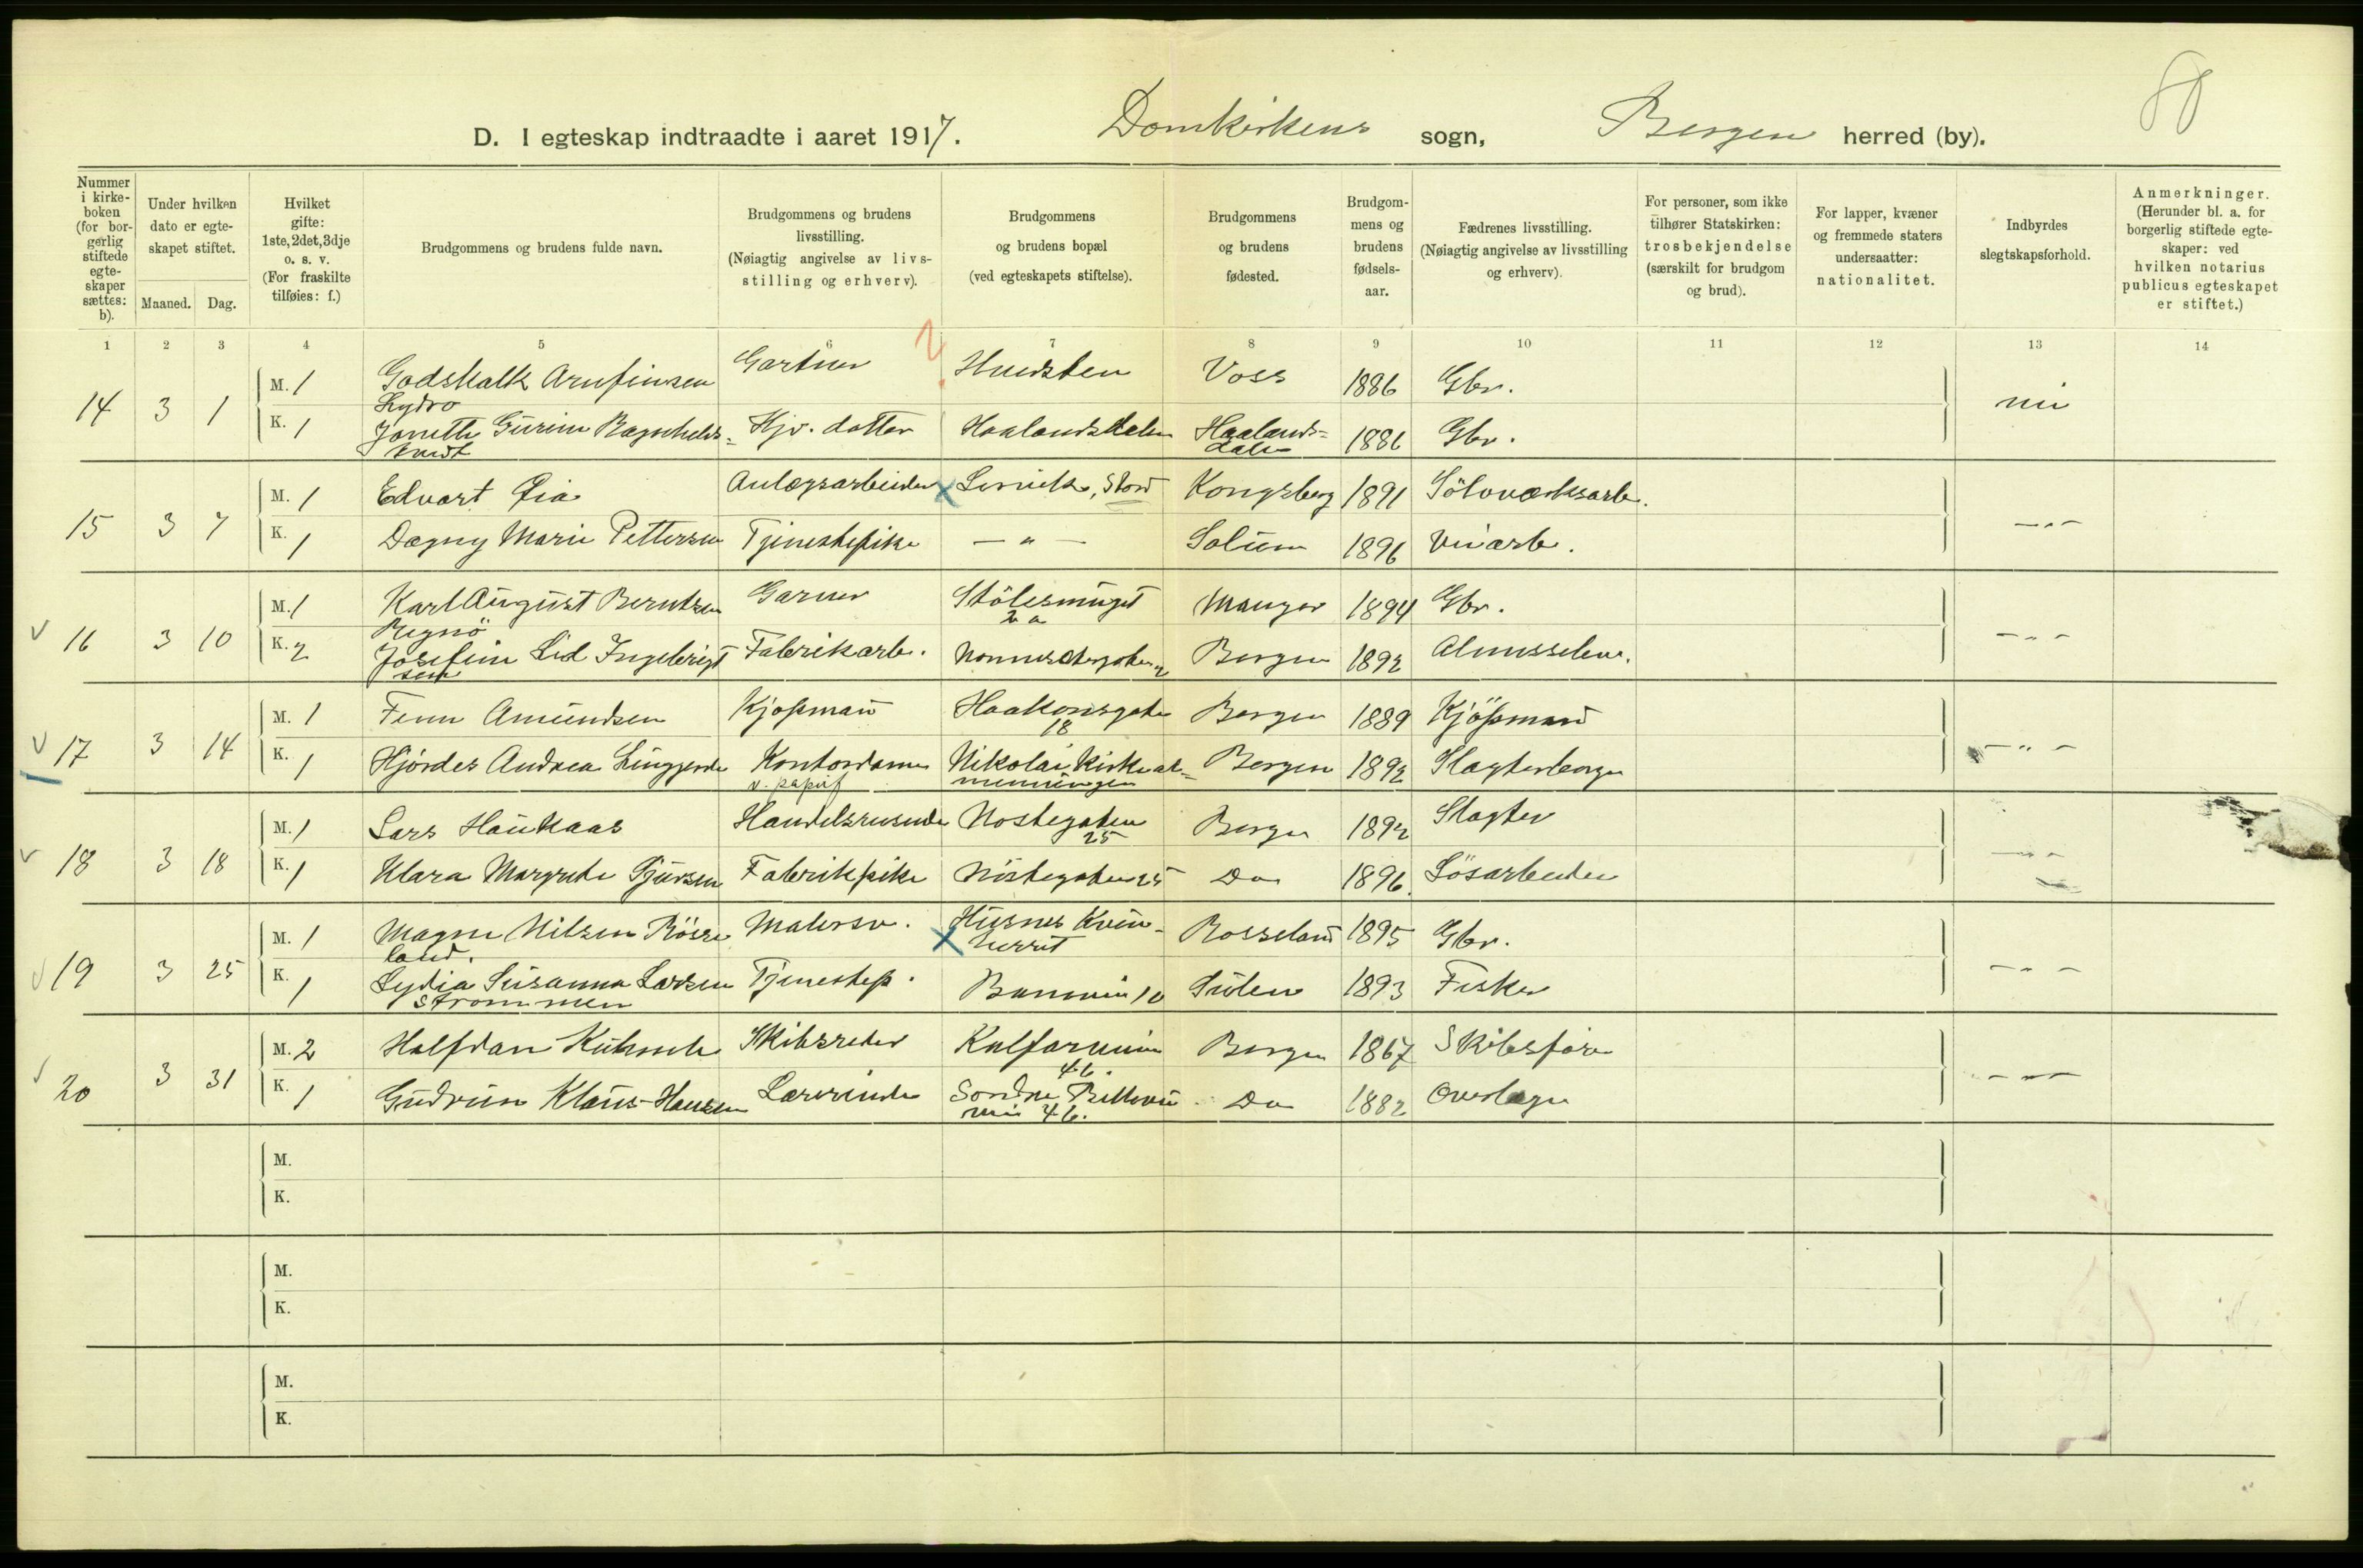 80
D. I egteskap indtraadte i aaret 1917. Domkirkens sogn, Bergen herred (by).
Nummer i kirkeboken (for borgerlig stiftede egteskaper sættes: b).
Under hvilken dato er egteskapet stiftet.
Maaned. Dag.
Hvilket gifte: 1ste, 2det, 3dje o. s. v. (For fraskilte tilføies: f.)
Brudgommens og brudens fulde navn.
Brudgommens og brudens livsstilling. (Nøiagtig angivelse av livsstilling og erhverv).
Brudgommens og brudens bopæl (ved egteskapets stiftelse).
Brudgommens og brudens fødested.
Brudgommens og brudens fødselsaar.
Fædrenes livsstilling. (Nøiagtig angivelse av livsstilling og erhverv).
For personer, som ikke tilhører Statskirken: trosbekjendelse (særskilt for brudgom og brud).
For lapper, kvæner og fremmede staters undersaatter: nationalitet.
Indbyrdes slegtskapsforhold.
Anmerkninger. (Herunder bl. a. for borgerlig stiftede egteskaper: ved hvilken notarius publicus egteskapet er stiftet.)
1 2 3 4 5 6 7 8 9 10 11 12 13 14
14 3 1 M. 1 Godskalk Arnfinsen Lydvo Gartner Voss 1886 Gbr.
K. 1 Hjv. datter Haalandsdalen Haalandsdalen 1886 Gbr.
15 3 7 M. 1 Edvart Anlægsarbeider Stord Kongsberg 1891 Sölvverksarb.
K. 1 Dagny Marie Pettersen Tjenestepike — " — Solum 1896
16 3 10 M. 1 Karl August Berntsen Garver Stölesmuget 2a Manger 1894 Gbr.
K. 2 Josefine Lid Ingebrigtsen Fabrikarb. Bergen 1892
17 3 14 M. 1 Finn Amundsen Kjøpmand Haakonsgaten 18 Bergen 1889 Kjöpmand
K. 1 Hjördes Andrea Kontordame Nikolai Kirkealmenningen Bergen 1892
— " —
18 3 18 M. 1 Lars Haukaas Handelsreisende Nostegaten 25 Bergen 1892 Slagter
K. 1 Klara Margrethe Fabrikpike Nöstegaten 25 Do 1896 Lösarbeider
19 3 25 M. 1 Magne Nilsen Rösseland. Malersv. Husnes Kvinherrit Rosseland 1895 Gbr.
K. 1 Lydia Susanna Larsen Strommen Tjenestep. Sulen 1893 Fisker
20 3 31 M. 2 Halfdan Kuhnle Skibsreder Kalfarveien 46. Bergen 1867 Skibsförer
K. 1 Gudrun Klaus-Hansen Lærerinde Sondre Bellevuevei 46. Do 1882 Overlæge
M.
K.
M.
K.
M.
K.